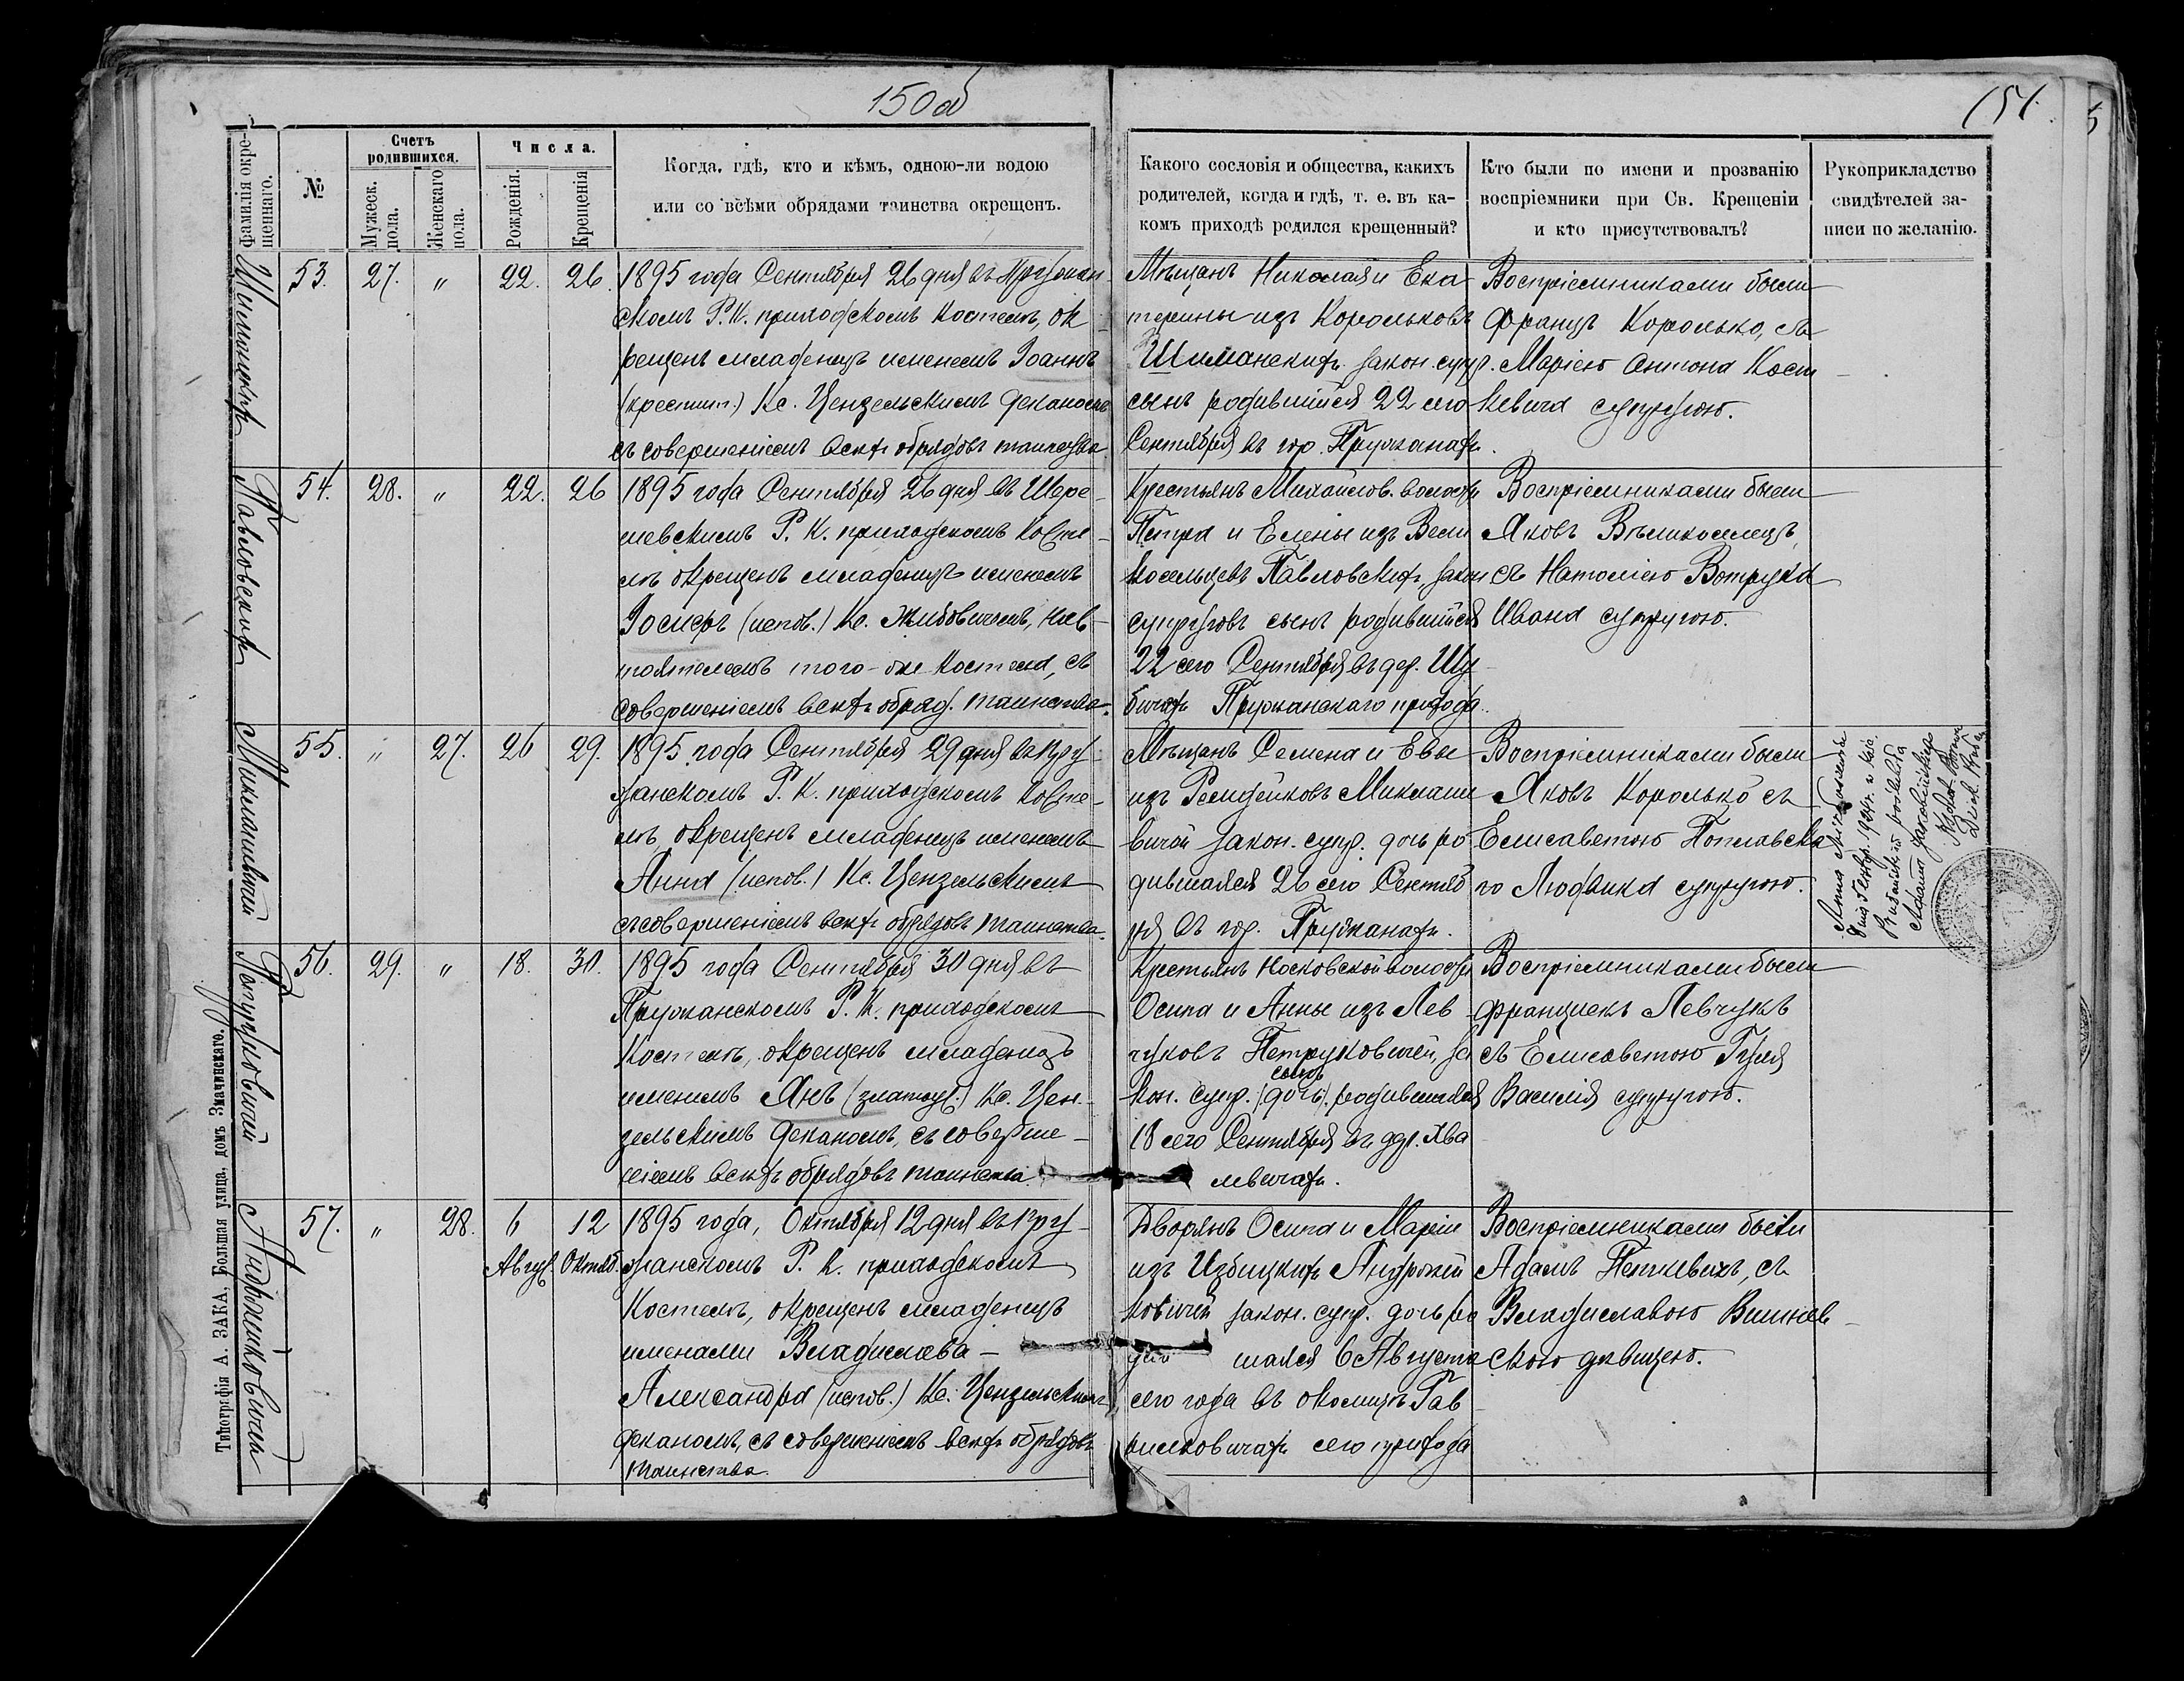 150об
151.
5
Фамилія окре-
щеннаго.
№
Счетъ
родившихся.
Мужеск.
пола.
Женскаго
пола.
Числа.
Рожденія.
Крещенія
Когда, гдѣ, кто и кѣмъ, одною-ли водою
или со всѣми обрядами таинства окрещенъ.
Какого сословія и общества, какихъ
родителей, когда и гдѣ, т. е. въ ка-
комъ приходѣ родился крещенный?
Кто были по имени и прозванію
воспріемники при Св. Крещеніи
и кто присутствовалъ?
Рукоприкладство
свидѣтелей за-
писи по желанію.
Шиманскій
53. 27. " 22. 26.
1895 года Сентября 26 дня въ Пружан-
скомъ Р. К. приходскомъ костелѣ, ок-
рещенъ младенецъ именемъ Іоаннъ
(крестит.) Кс. Цензельскимъ деканомъ
съ совершеніемъ всехъ обрядовъ таинства
Мѣщанъ Николая и Ека-
терины изъ Корольковъ
Шиманскихъ закон. супр.
сынъ родившійся 22 сего
Сентября въ гор. Пружанахъ.
Воспріемниками были
Францъ Королько, съ
Маріею Антона Кост-
кевича супругою.
Павловскій
54. 28. " 22. 26
1895 года Сентября 26 дня въ Шере-
шевскимъ Р. К. приходскомъ косте-
лѣ окрещенъ младенецъ именемъ
Іосифъ (испов.) Кс. Жибовичемъ, нас-
тоятелемъ того-же костела, съ
совершеніемъ всехъ обряд. таинства.
Крестьянъ Михайлов. волости
Петра и Елены изъ Вели-
косельцевъ Павловскихъ, закон
супруговъ сынъ родившійся
22 сего Сентября въ дер. Шу-
бичахъ Пружанскаго прихода.
Воспріемниками были
Яковъ Вѣликоселецъ,
съ Натоліею Вотрука
Ивана супругою.
55. " 27. 26 29.
1895 года Сентября 29 дня въ Пру-
жанскомъ Р. К. приходскомъ косте-
лѣ окрещенъ младенецъ именемъ
Анна (испов.) Кс. Цензельскимъ
съ совершеніемъ всехъ обрядовъ таинства.
Мѣщанъ Семена и Евы
вичей закон. супр. дочь ро-
дившаяся 26 сего Сентяб-
ря въ гор. Пружанахъ.
Воспріемниками были
Яковъ Королько съ
Елисаветою Поплавска-
го Людвика супругою.
56. 29. " 18. 30.
1895 года Сентября 30 дня въ
Пружанскомъ Р. К. приходскомъ
костелѣ, окрещенъ младенецъ
именемъ Янъ (златоус.) Кс. Цен-
зельскимъ деканомъ, съ соверше-
ніемъ всехъ обрядовъ таинства.
Крестьянъ Носковской волости
Осипа и Анны изъ Лев-
чуковъ Петруковичей, за-
сынъ
кон. супр. (дочь). родившаяся
18 сего Сентября въ дер. Хва-
левичахъ.
Воспріемниками были
Францискъ Левчукъ
съ Елисаветою Гуля
Василія супругою.
57. " 28. 6 12
Август. Октяб.
1895 года, Октября 12 дня въ Пру-
жанскомъ Р. К. приходскомъ
костелѣ, окрещенъ младенецъ
именами Владислава-
Александра (испов.) Кс. Цензельскимъ
деканомъ, съ совершеніемъ всехъ обрядовъ
таинства.
Дворянъ Осипа и Маріи
закон. супр. дочь ро-
шаяся 6 Августа
сего года въ околицѣ Гав-
риловичахъ сего прихода
Воспріемниками были
Адамъ Петкевичъ, съ
Владиславою Вишнев-
скою дѣвицею.
Типографія А. ЗАКА, Большая улица, домъ Значинскаго.